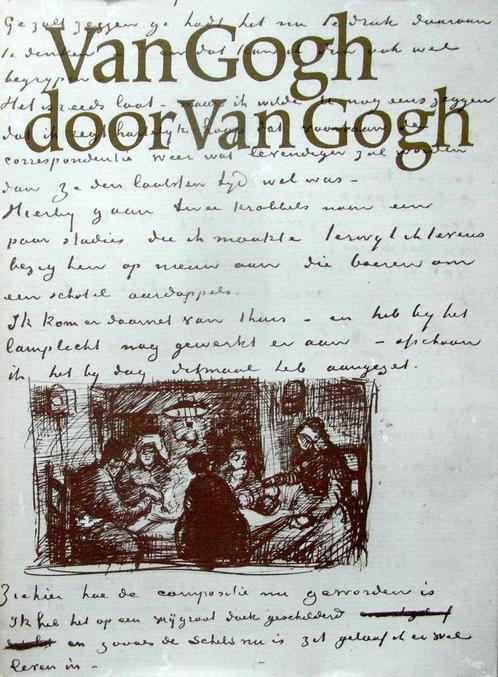 Ge zult zeggen ge hadt het nu te druk daaraan
Van Gogh
te denken en dat kan ik dan ook wel
begrypen
Het is reeds laat - maar ik wilde U nog eens zeggen
door Van Gogh
dat ik zegt hartelyk hoop dat voortaan de
correspondentie weer wat levendiger zal worden
dan ze den laatsten tyd wel was -
Hierby gaan twee krabbels naar een
paar studies die ik maakte terwyl ik tevens
bezig ben op nieuw aan die boeren om
een schotel aardappels.
Ik kom er daarnet van thuis - en heb by het
lamplicht nog gewerkt er aan - ofschoon
ik het by dag ditmaal heb aangezet.
Ziehier hoe de compositie nu geworden is
Ik heb het op een vrij groot doek geschilderd
en zooals de schets nu is zit geloof ik er wel
leven in -